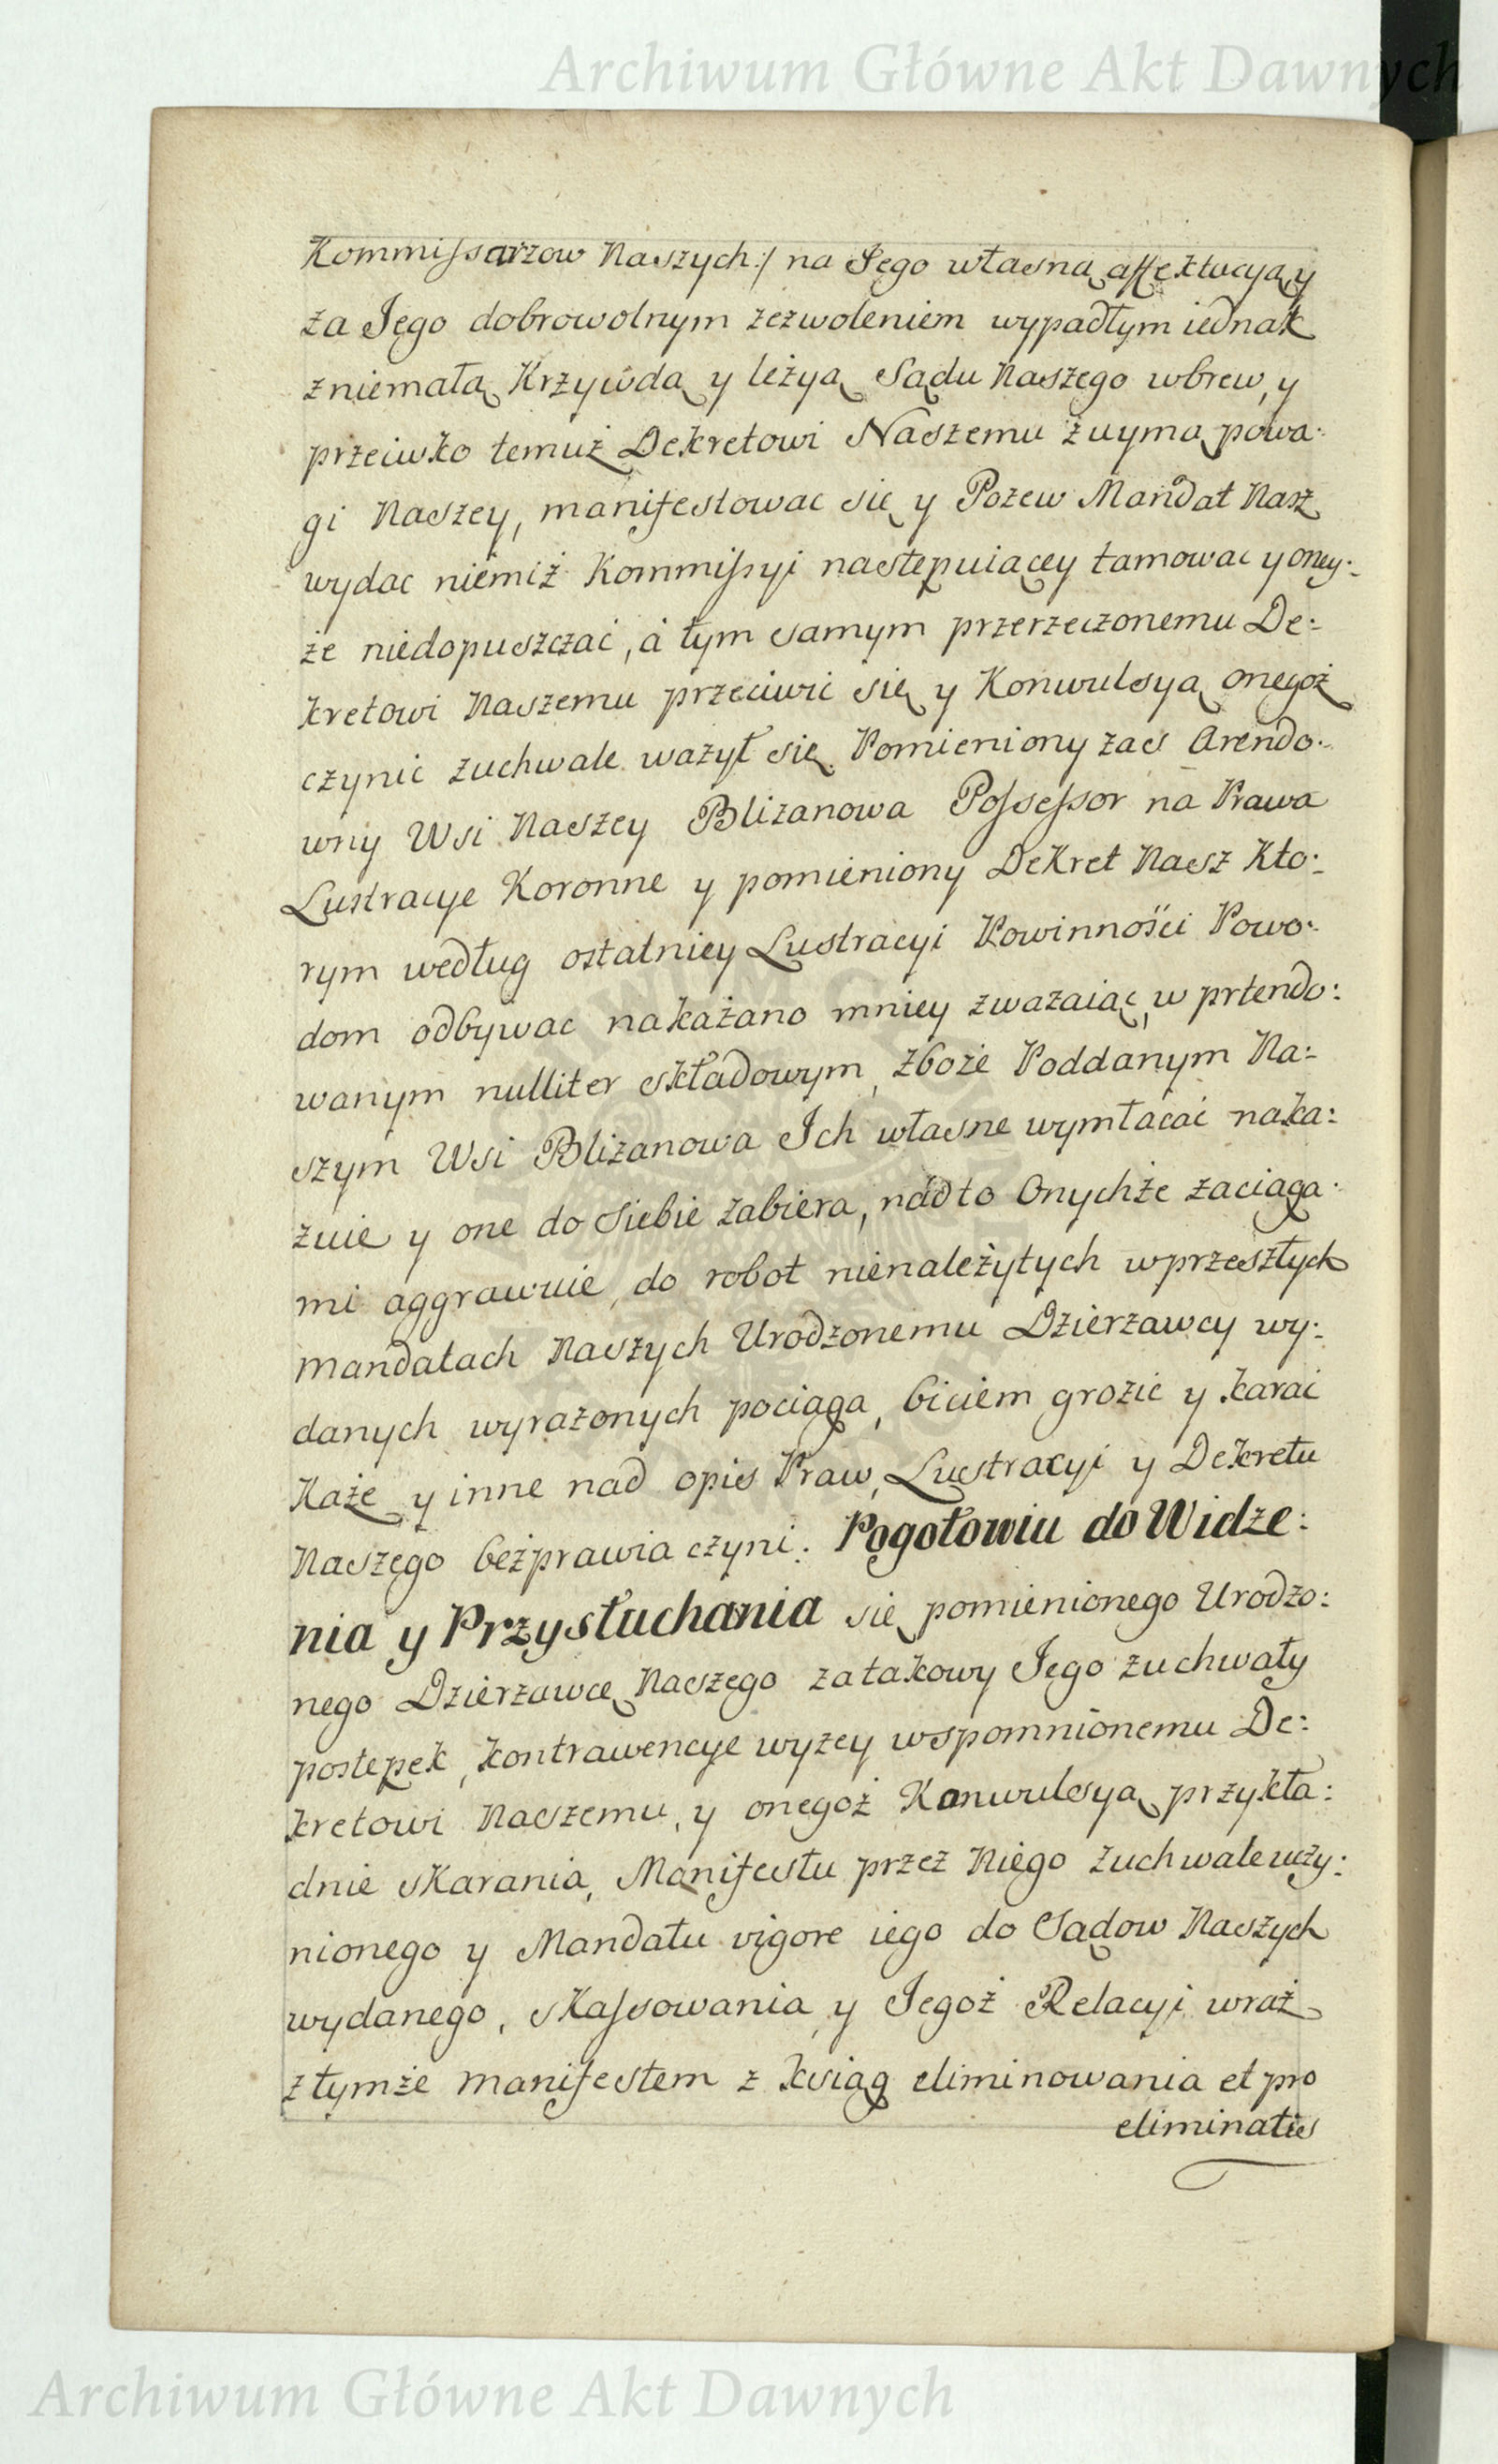 Archiwum Główne Akt Dawnych
Kommissarzow Naszych:/ na Jego własną affektacyą y
za Jego dobrowolnym zezwoleniem wypadłym iednak
z niemałą Krzywdą y leżyą Sądu Naszego wbrew, y
przeciwko temuż Dekretowi Naszemu z uymą powa:
gi Naszey, manifestowac się y Pozew Mandat Nasz
wydac niemiż Kommissyi nastepuiącey tamowac y oney:
że niedopuszczać, á tym samym przerzeczonemu De:
kretowi Naszemu przeciwić się y Konwulsyą onegoż
czynic zuchwale ważył się. Pomieniony zas Arendo:
wny Wsi Naszey Blizanowa Possessor na Prawa
Lustracye Koronne y pomieniony Dekret Nasz Kto:
rym według ostatniey Lustracyi Powinności Powo:
dom odbywac nakażano mniey zważaiąc, w prtendo:
wanym nulliter składowym, zboże Poddanym Na:
szym Wsi Blizanowa Ich własne wymłacać naka:
zuie y one do Siebie zabiera, nádto Onychże zaciąga:
mi aggrawuie, do robot nienależytych w przeszłych
mandatach Naszych Urodzonemu Dzierzawcy wy:
danych wyrażonych pociąga, biciem grozić y karać
Każe y inne nad opis Praw, Lustracyi y Dekretu
Naszego bezprawia czyni. Pogotowiu do Widze:
nia y Przysłuchania się pomienionego Urodzo:
nego Dzierzawcę Naszego za takowy Jego zuchwały
postępek, kontrawencye wyżey wspomnionemu De:
kretowi Naszemu, y onegoż Konwulsyą przykła:
dnie skarania, Manifestu przez Niego zuchwale uczy:
nionego y Mandatu vigore iego do Sądow Naszych
wydanego, skassowania, y Jegoż Relacyi wraz
z tymże manifestem z ksiąg eliminowania et pro
eliminatis
Archiwum Główne Akt Dawnych